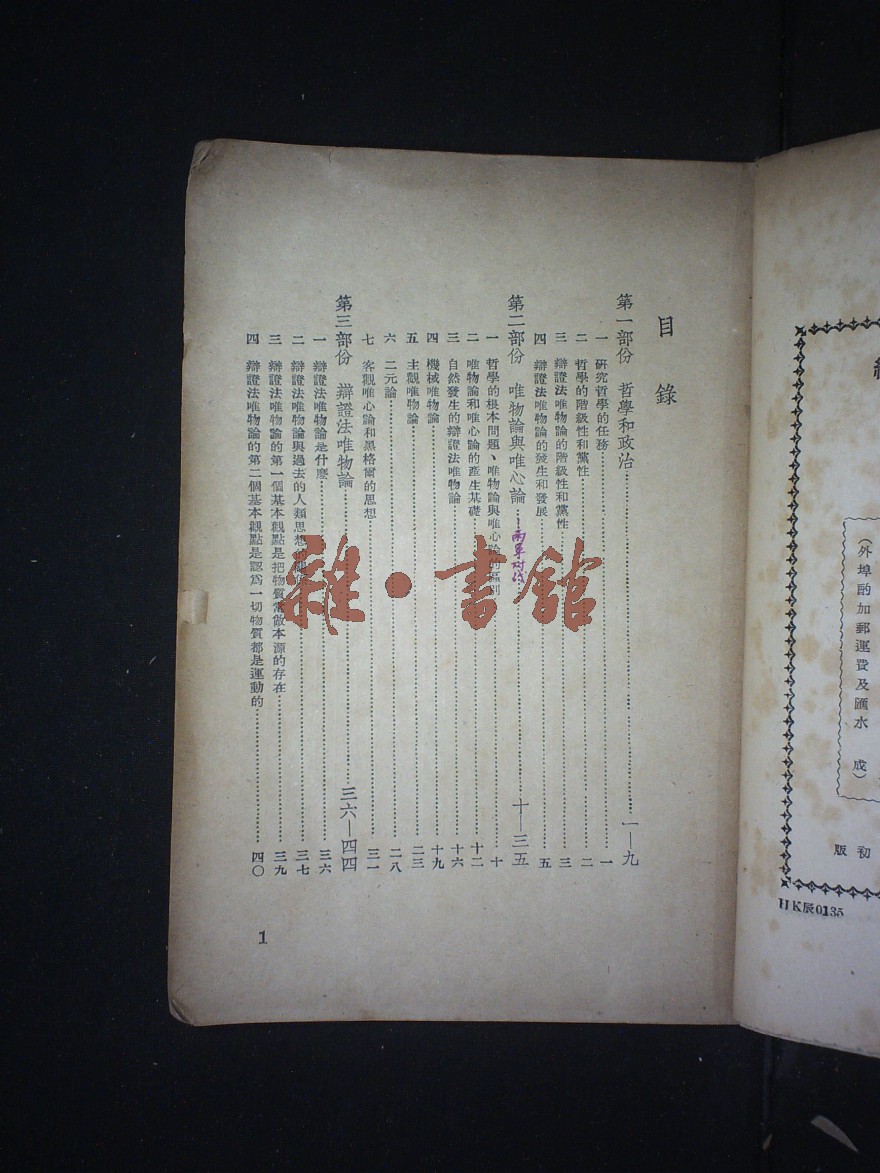 目錄
第一部份 哲學和政治 一—九
一 硏究哲學的任務 一
二 哲學的階級性和黨性 二
三 辯證法唯物論的階級性和黨性 三
四 辯證法唯物論的發生和發展 五
第二部份 唯物論與唯心論 十—三五
一 哲學的根本問題、唯物論與唯心論的區別 十
二 唯物論和唯心論的產生基礎 十二
三 自然發生的辯證法唯物論 十六
四 機械唯物論 十九
五 主觀唯物論 二三
六 二元論 二八
七 客觀唯心論和黑格爾的思想 三一
第三部份 辯證法唯物論 三六—四四
一 辯證法唯物論是什麽 三六
二 辯證法唯物論與過去的人類思想的 三七
三 辯證法唯物論的第一個基本觀點是把物質當做本源的存在 三九
四 辯證法唯物論的第二個基本觀點是認爲一切物質都是運動的 四〇
1
雜·書館
(外埠酌加郵運費及匯水 成)
初版
HK辰0135